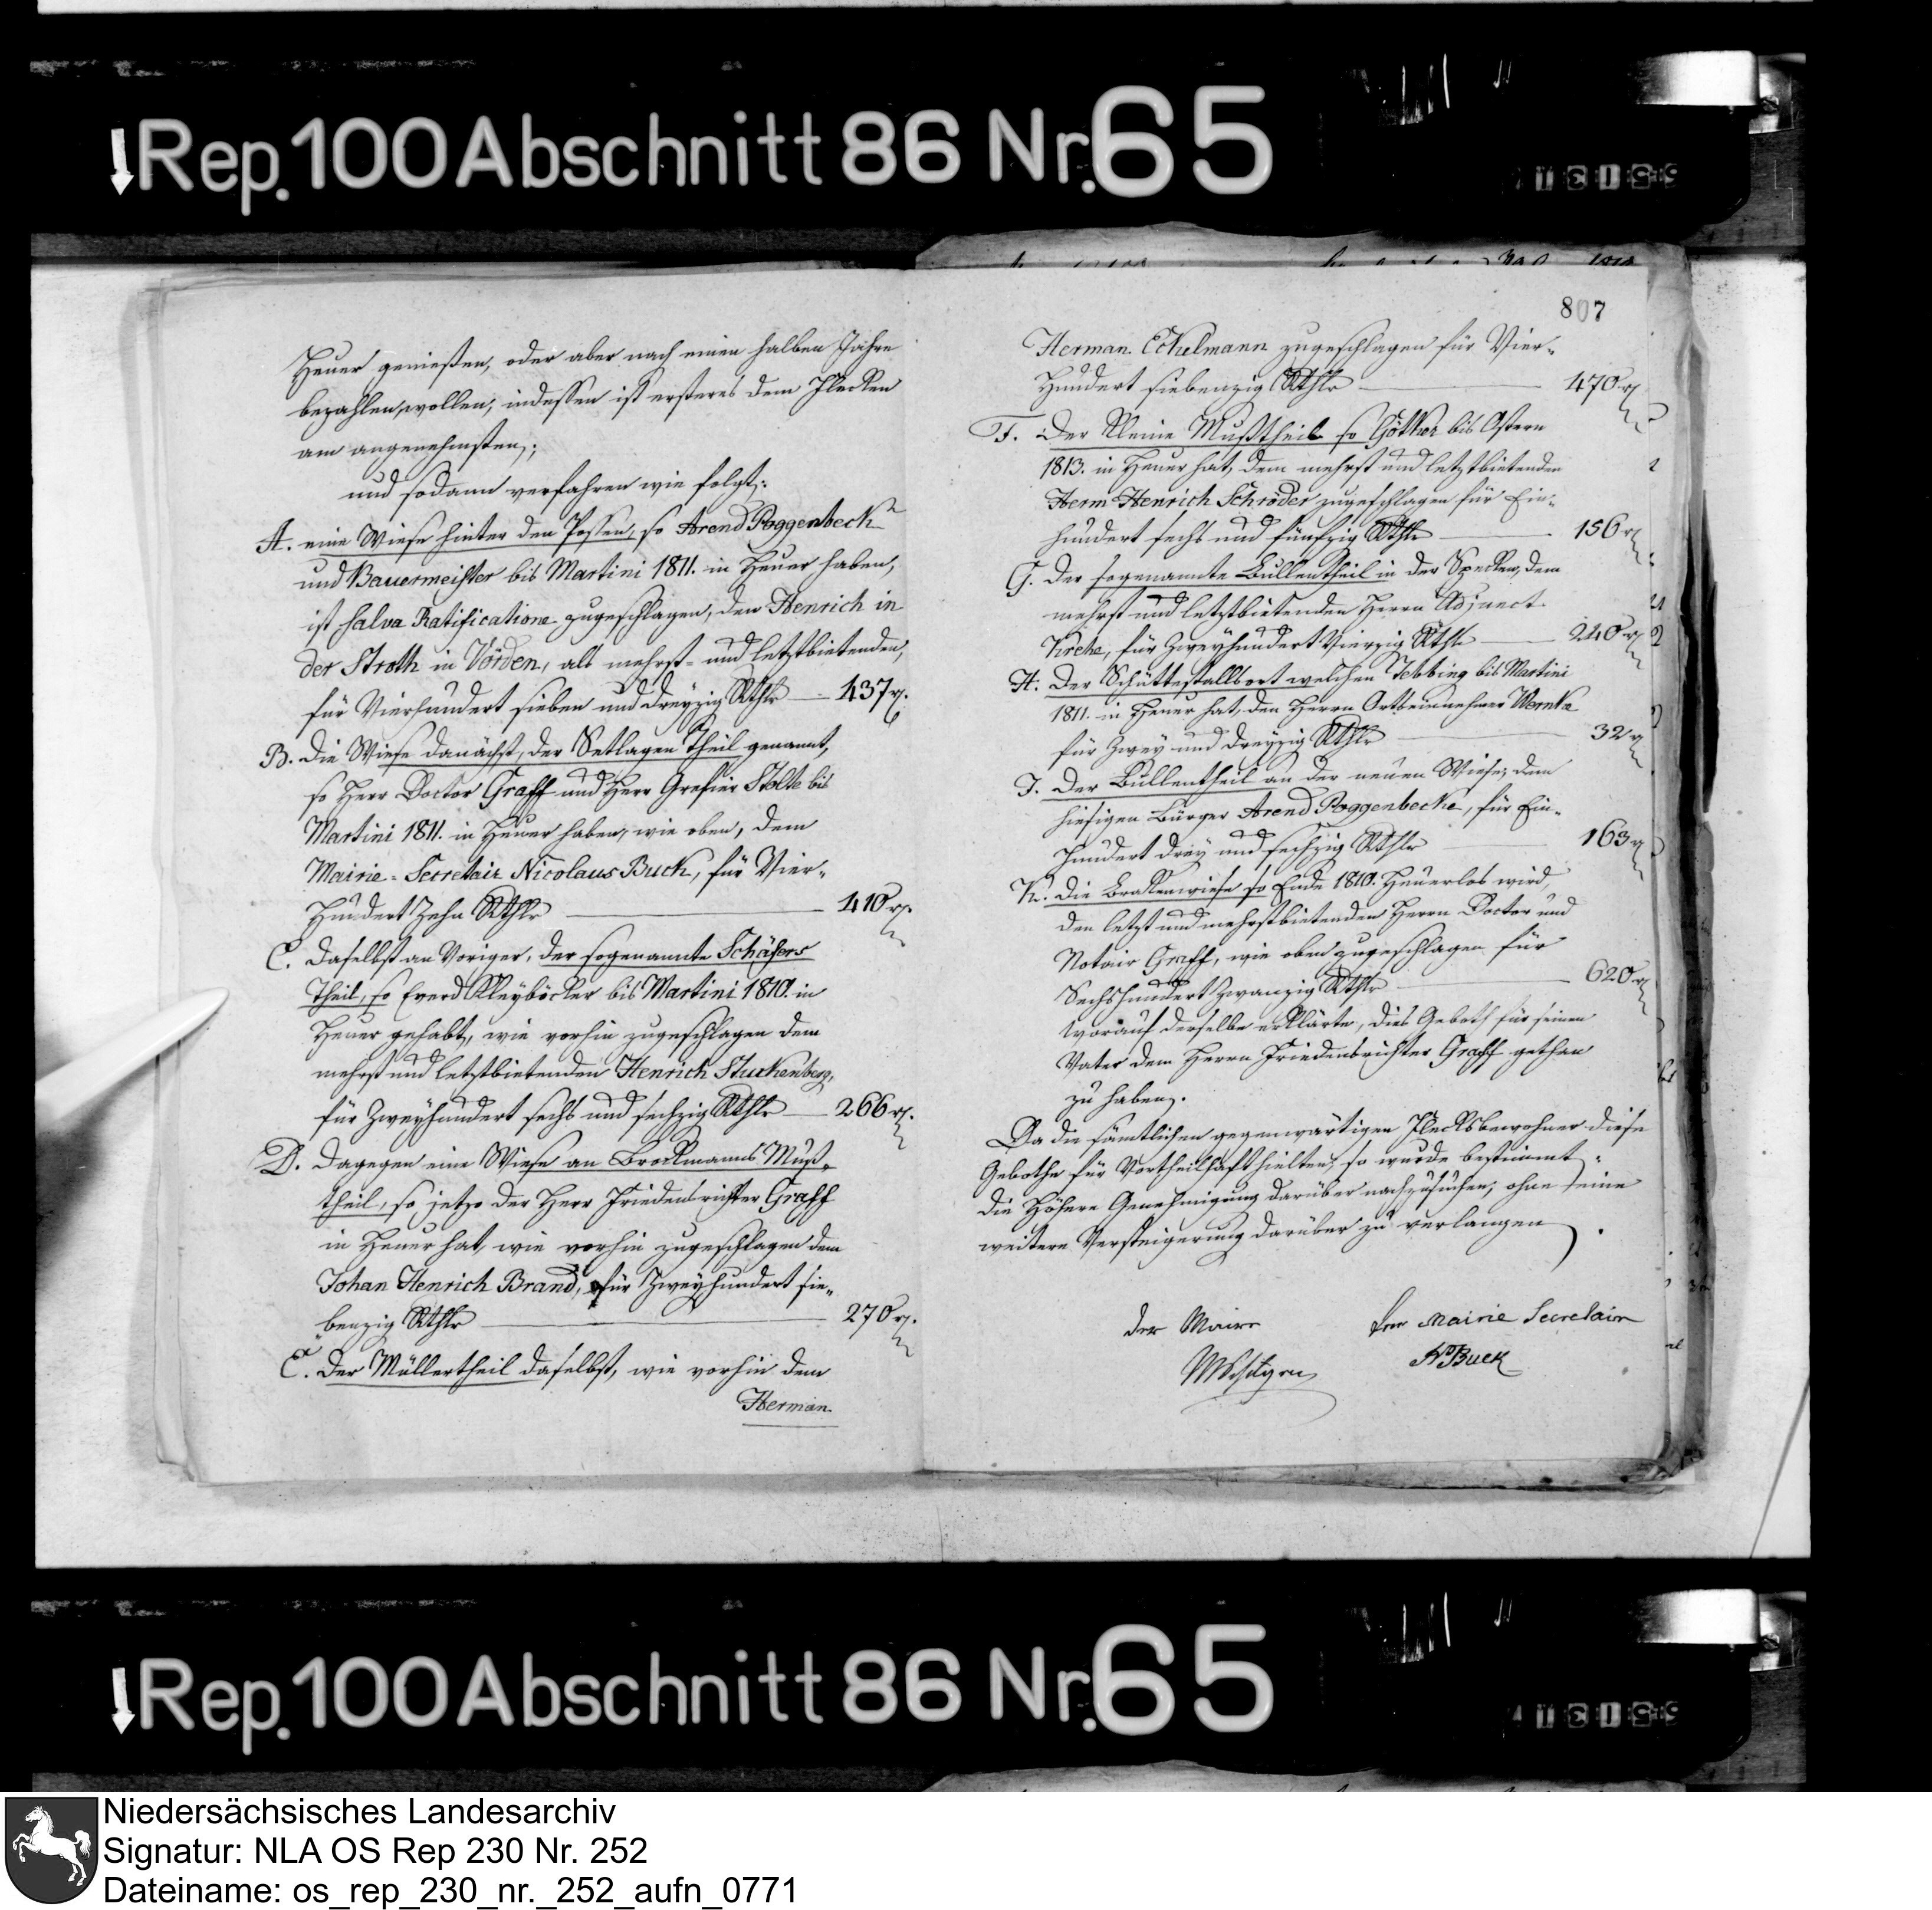 Rep. 100 Abschnitt 86 Nr. 65
Heuer genießen, oder aber nach einen halben Jahre
bezahlen wollen, indessen ist ersteres dem Flecken
am angenehmsten;
und sodann verfahren wie folgt:
A. eine Wiese hinter den Possen, so Arend Poggenbeck
und Bauermeister bis Martini 1811. in Heuer haben,
ist salva Ratificatione zugeschlagen, den Henrich in
der Stroth in Vörden, als mehrst- und letztbietenden,
für Vierhundert sieben und dreyzig Rthlr — 437 r.
B. Die Wiese danächst, der Setlagen Theil genannt,
so Herr Doctor Graff und Herr Grefier Stolte bis
Martini 1811. in Heuer haben, wie oben, dem
Mairie-Secretair Nicolaus Buck, für Vier-
Hundert Zehn Rthlr — 410 r.
C. Daselbst an Voriger, der sogenannte Schäfers
Theil, so Everd Kleyböcker bis Martini 1810. in
Heuer gehabt, wie vorhin zugeschlagen dem
mehrst und letztbietenden Henrich Stuckenberg,
für Zweyhundert sechs und sechzig Rthlr — 266 r.
D. Dagegen eine Wiese an Brockmanns Muß-
theil, so jetzo der Herr Friedensrichter Graff
in Heuer hat, wie vorhin zugeschlagen dem
Johan Henrich Brand, für Zweyhundert sie-
benzig Rthlr — 270 r.
E. Der Müllertheil daselbst, wie vorhin dem
Herman
807
Herman Eckelmann zugeschlagen für Vier-
Hundert siebenzig Rthlr — 470 r
F. Der Kleine Mußtheil so Göther bis Ostern
1813. in Heuer hat, dem mehrst und letztbietenden
Herm Henrich Schröder zugeschlagen für Ein-
hundert sechs und fünfzig Rthlr — 156 r
G. Der sogenannte Bullentheil in der Specken, dem
mehrst und letztbietenden Herrn Adjunct
für Zweyhundert Vierzig Rthlr — 240 r
H. Der Schüttestallsort welchen Tebbing bis Martini
1811. in Heuer hat, den Herrn Ortseinnehmer Wernke
für Zwey und dreyzig Rthlr — 32 r
J. Der Bullentheil an der neuen Wiese, dem
hiesigen Bürger Arend Poggenbecke, für Ein-
Hundert drey und sechzig Rthlr — 163 r
K. Die Brakenwiese so Ende 1810. Heuerlos wird,
den letzt und mehrstbietenden Herrn Doctor und
Notair Graff, wie oben zugeschlagen für
Sechshundert Zwanzig Rthlr — 620 r
worauf derselbe erklärte, dies Geboth für seinen
Vater dem Herrn Friedensrichter Graff gethan
zu haben.
Da die sämtlichen gegenwärtigen Flecksbewohner diese
Gebothe für Vortheilhaft hielten, so wurde bestimmt
die Höhere Genehmigung darüber nachzusuchen, ohne eine
weitere Versteigerung darüber zu verlangen.
der Maire
der Mairie Secretair
N Buck
Rep. 100 Abschnitt 86 Nr. 65
Niedersächsisches Landesarchiv
Signatur: NLA OS Rep 230 Nr. 252
Dateiname: os_rep_230_nr._252_aufn_0771